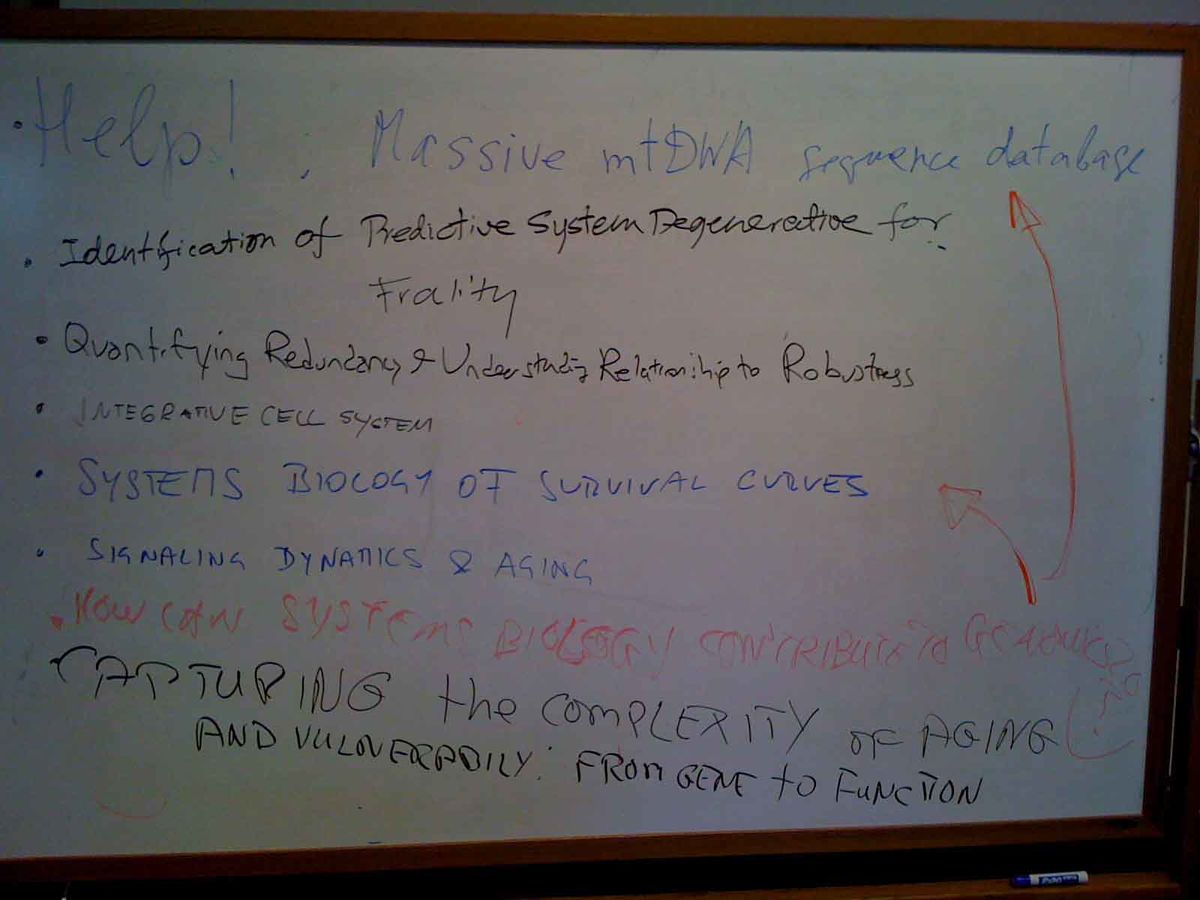 · Help! : Massive mtDNA sequence database
· Identification of Predictive System Degenerative for
Fraility
· Quantifying Redundancy & Understanding Relationship to Robustness
· INTEGRATIVE CELL SYSTEM
· SYSTEMS BIOLOGY OF SURVIVAL CURVES
· SIGNALING DYNAMICS & AGING
· HOW CAN SYSTEMS BIOLOGY CONTRIBUTE TO
CAPTURING the COMPLEXITY OF AGING
AND VULNERABILY: FROM GENE to FUNCTION